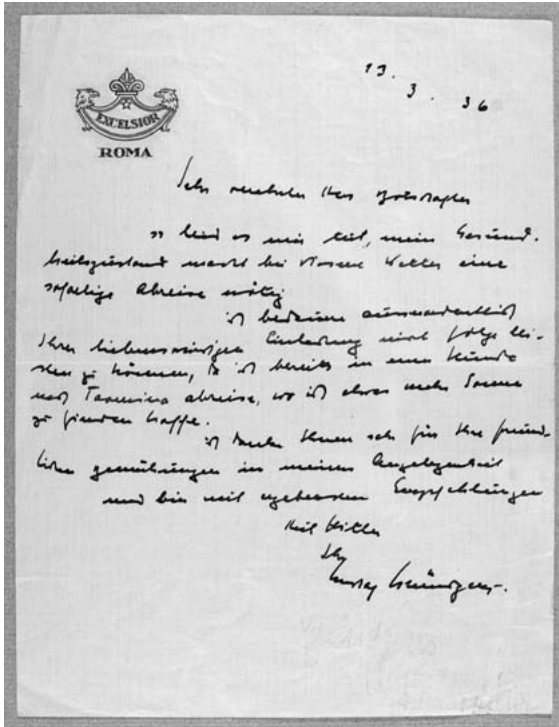 EXCELSIOR
ROMA
13.
3. 36
Sehr verehrter Herr Botschafter
so leid es mir tut, mein Gesund-
heitszustand macht bei diesem Wetter eine
sofortige Abreise nötig
ich bedaure ausserordentlich
Ihrer liebenswürdigen Einladung nicht folge lei-
sten zu können, da ich bereits in einer Stunde
nach Taormina abreise, wo ich etwas mehr Sonne
zu finden hoffe.
ich danke Ihnen sehr für Ihre freund-
lichen Bemühungen in meiner Angelegenheit
und bin mit ergebensten Empfehlungen
Heil Hitler
Ihr
Gustaf Gründgens.